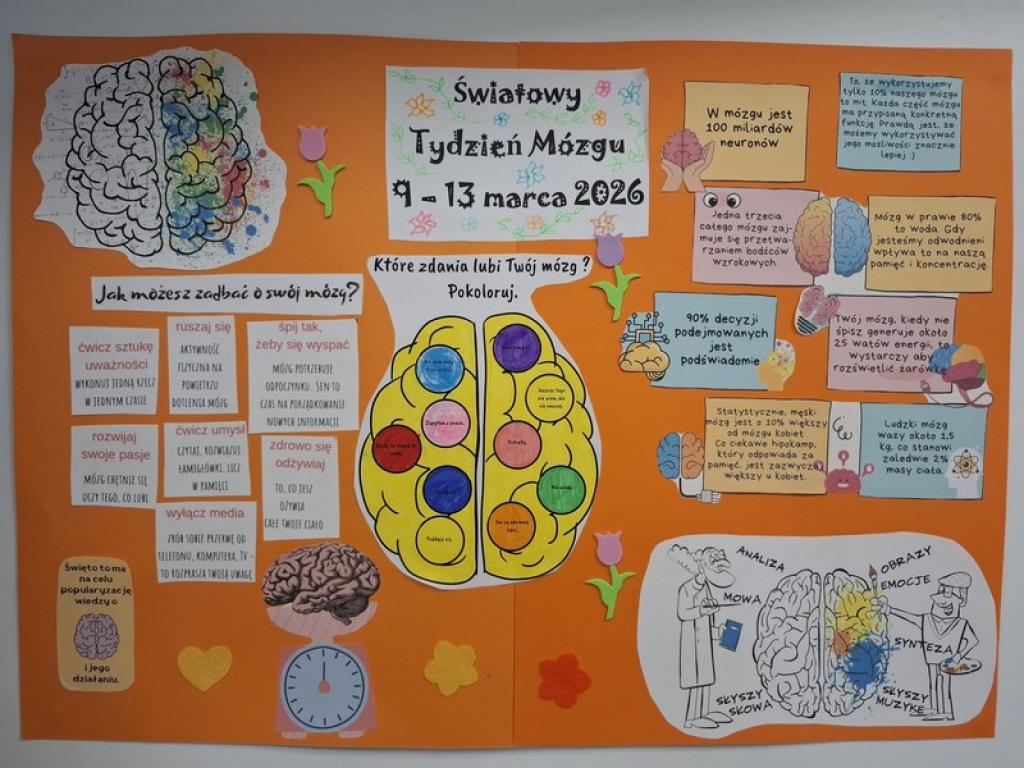 Światowy
Tydzień Mózgu
9 - 13 marca 2026
Jak możesz zadbać o swój mózg?
ćwicz sztukę
uważności
WYKONUJ JEDNĄ RZECZ
W JEDNYM CZASIE
ruszaj się
AKTYWNOŚĆ
FIZYCZNA NA
POWIETRZU
DOTLENIA MÓZG
śpij tak,
żeby się wyspać
MÓZG POTRZEBUJE
ODPOCZYNKU. SEN TO
CZAS NA PORZĄDKOWANIE
NOWYCH INFORMACJI
rozwijaj
swoje pasje
MÓZG CHĘTNIE SIĘ
UCZY TEGO, CO LUBI
ćwicz umysł
CZYTAJ, ROZWIĄZUJ
ŁAMIGŁÓWKI, LICZ
W PAMIĘCI
zdrowo się
odżywiaj
TO, CO JESZ
OŻYWIA
CAŁE TWOJE CIAŁO
wyłącz media
ZRÓB SOBIE PRZERWĘ OD
TELEFONU, KOMPUTERA, TV -
TO ROZPRASZA TWOJĄ UWAGĘ
Święto to ma
na celu
popularyzację
wiedzy o
i jego
działaniu.
Które zdania lubi Twój mózg ?
Pokoloruj.
Zapytam o pomoc.
Jeszcze tego
nie wiem, ale
się nauczę.
Potrafię.
Poddaję się.
Nie umiem.
W mózgu jest
100 miliardów
neuronów
To, że wykorzystujemy
tylko 10% naszego mózgu
to mit. Każda część mózgu
ma przypisaną konkretną
funkcję. Prawdą jest, że
możemy wykorzystywać
jego możliwości znacznie
lepiej :)
Jedna trzecia
całego mózgu zaj-
muje się przetwa-
rzaniem bodźców
wzrokowych.
Mózg w prawie 80%
to woda. Gdy
jesteśmy odwodnieni
wpływa to na naszą
pamięć i koncentrację.
90% decyzji
podejmowanych
jest
podświadomie
Twój mózg, kiedy nie
śpisz generuje około
25 watów energii, to
wystarczy aby
rozświetlić żarówkę
Statystycznie, męski
mózg jest o 10% większy
od mózgu kobiet
Co ciekawe hipokamp,
który odpowiada za
pamięć, jest zazwyczaj
większy u kobiet.
Ludzki mózg
waży około 1,5
kg, co stanowi
zaledwie 2%
masy ciała.
ANALIZA
MOWA
SŁYSZY
SŁOWA
OBRAZY
EMOCJE
SYNTEZA
SŁYSZY
MUZYKĘ